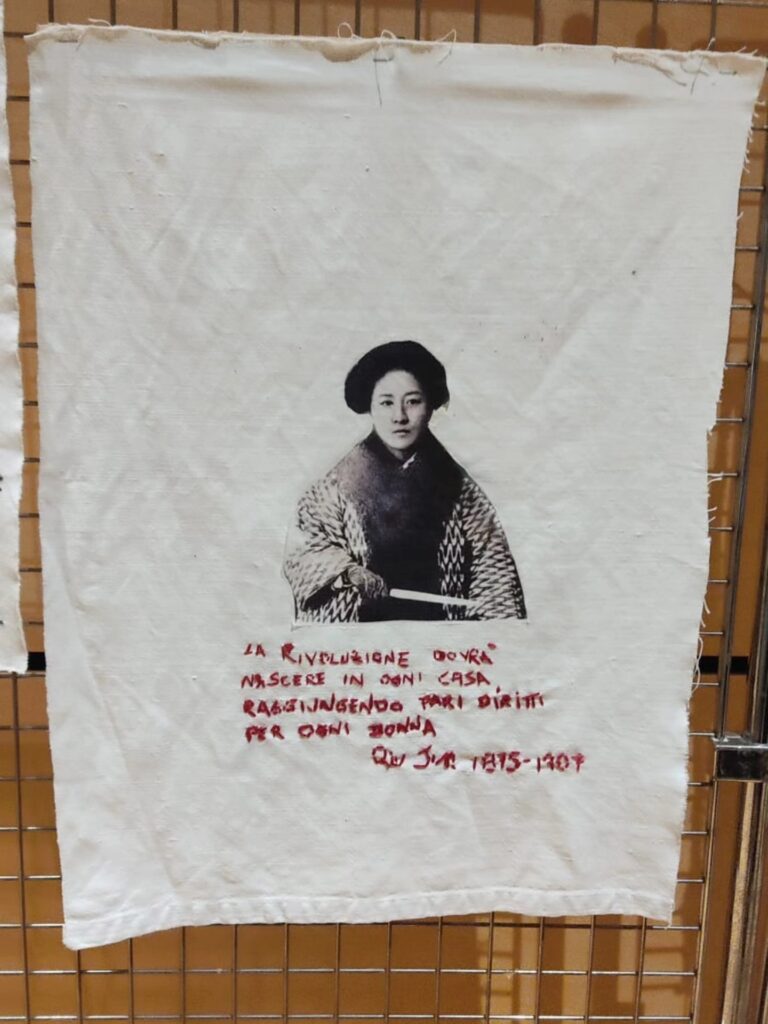 LA RIVOLUZIONE DOVRA'
NASCERE IN OGNI CASA,
RAGGIUNGENDO PARI DIRITTI
PER OGNI DONNA
Qiu Jin 1875-1907